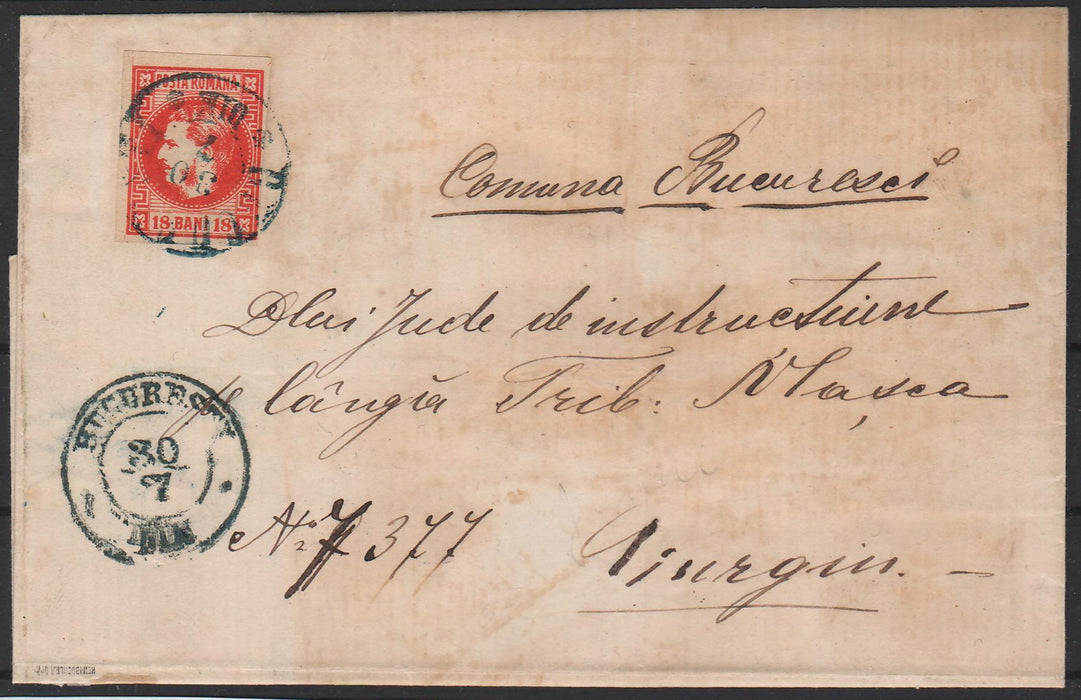 POSTA ROMANA
18 BANI 18
Comuna Bucuresci
Dlui Jude de instructiune
pe lângă Trib: Vlașca
BUCURESTI
30
7
Nº 7377
Giurgiu. —